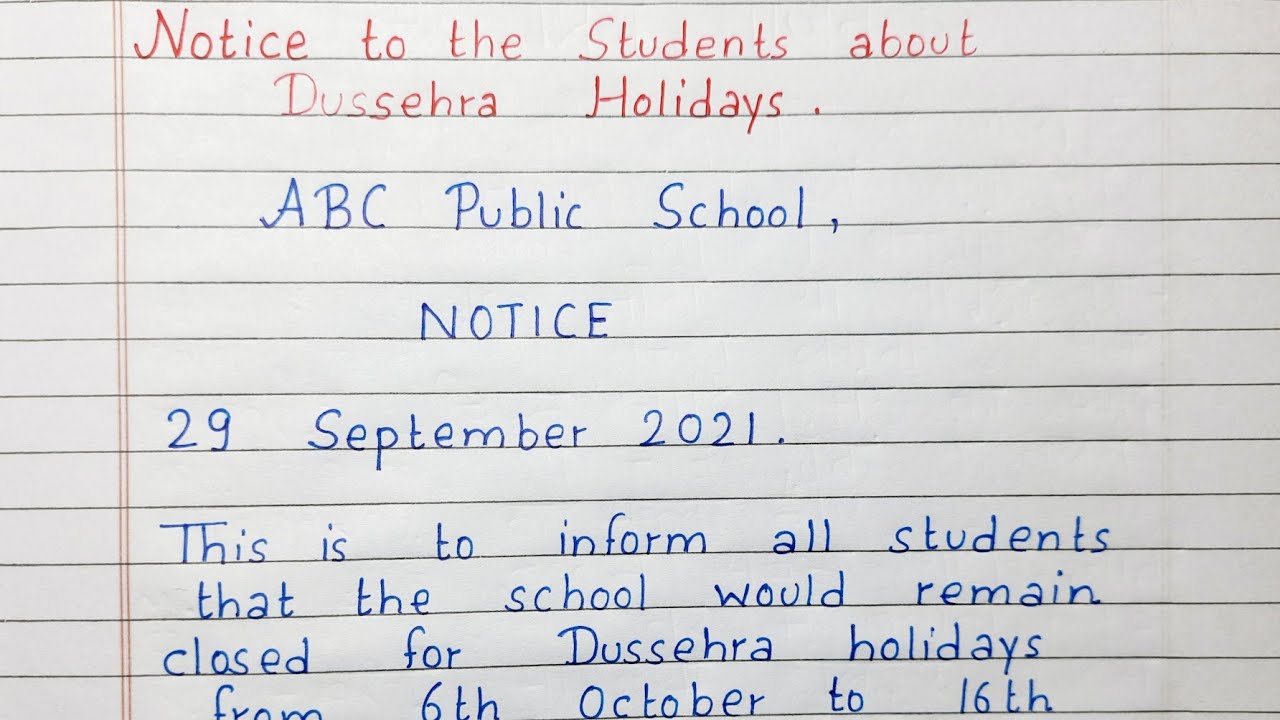 Notice to the Students about
Dussehra Holidays.
ABC Public School,
NOTICE
29 September 2021.
This is to inform all students
that the school would remain
closed for Dussehra holidays
from 6th October to 16th